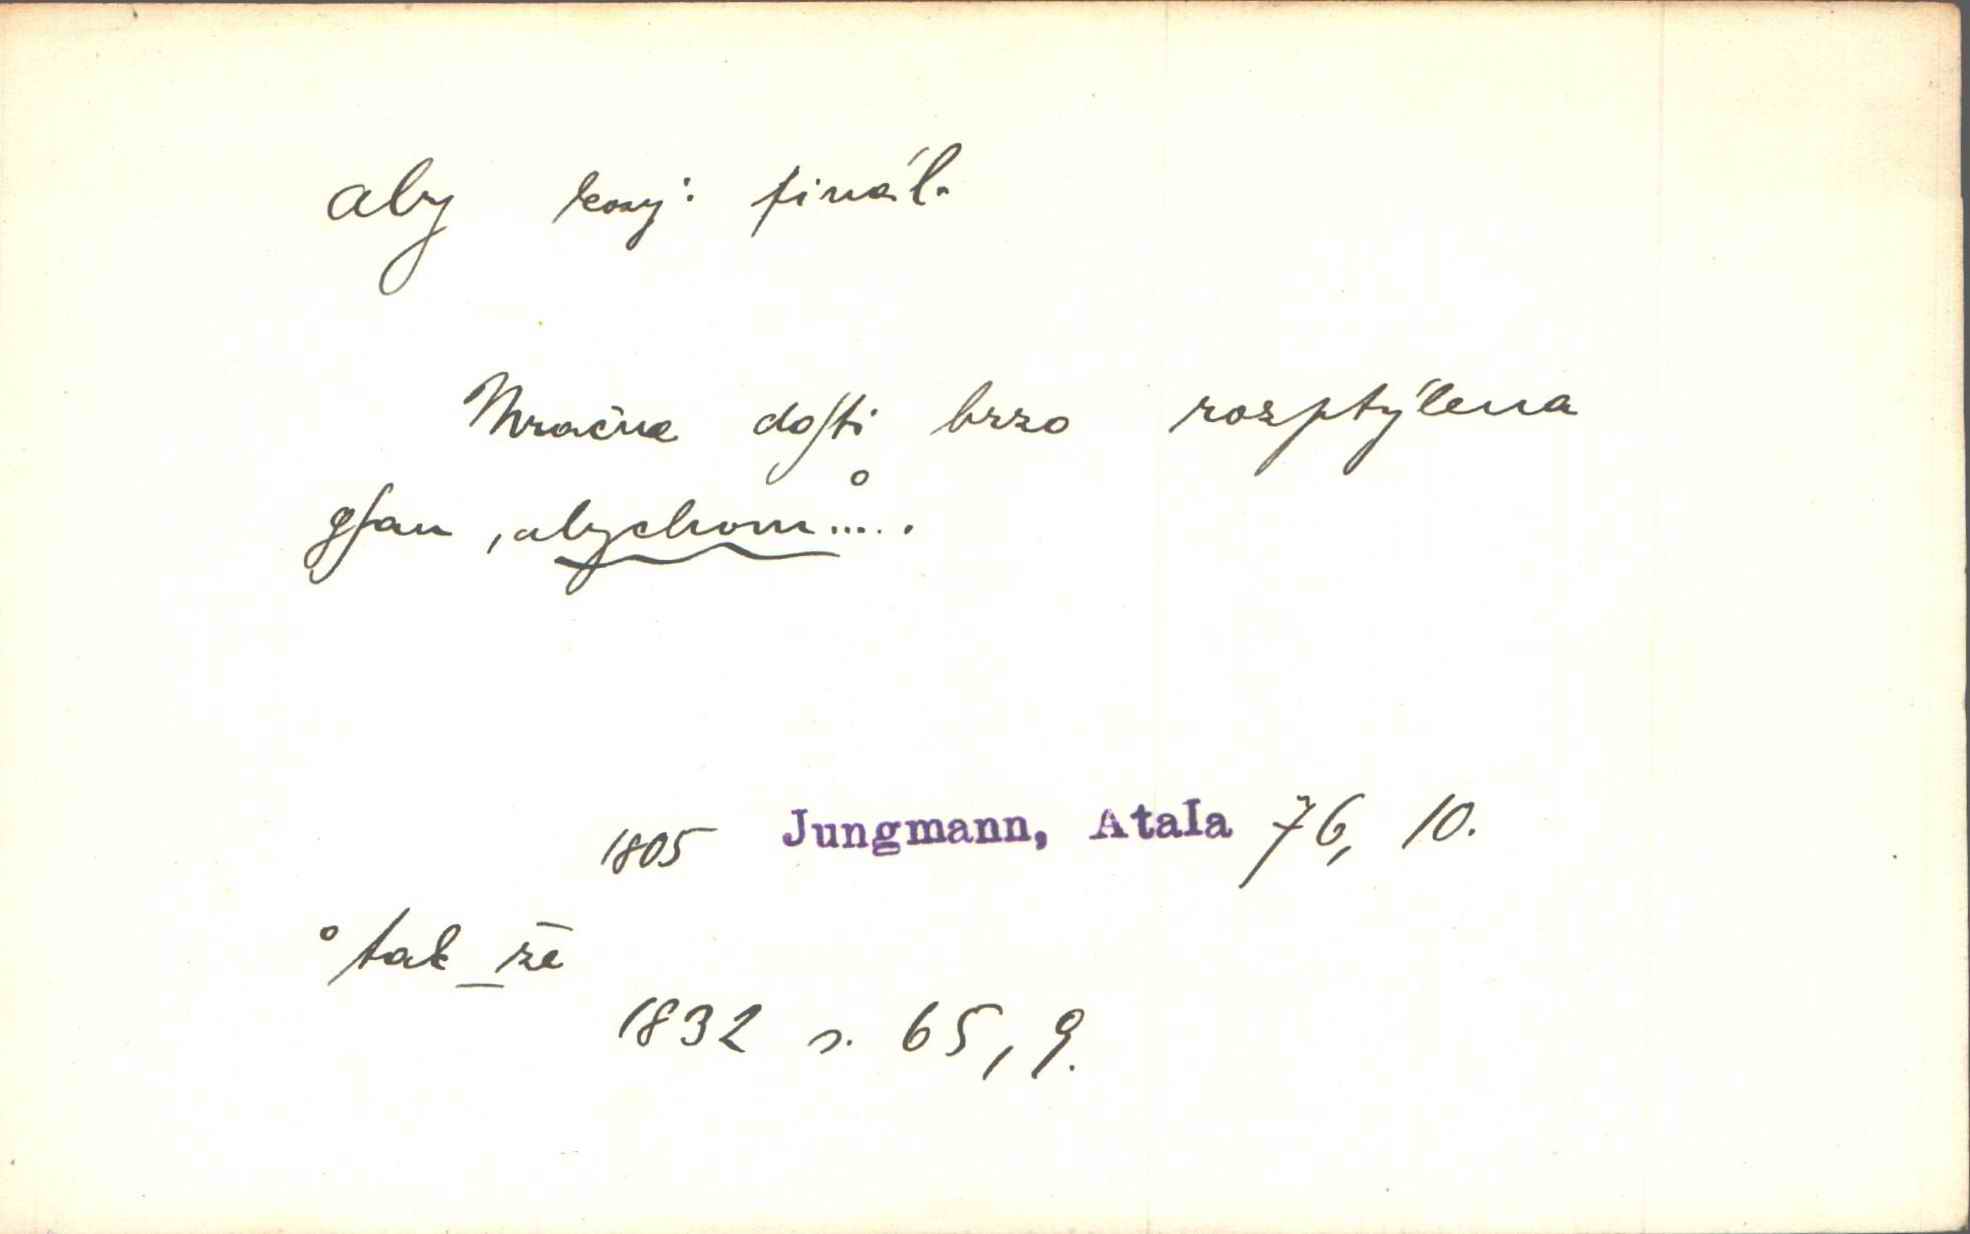 aby konj: finál.
Mračna doſti brzo rozptýlena
gſau, abychom°.....
1805 Jungmann, Atala 76, 10.
° tak_že
1832 s. 65, 9.